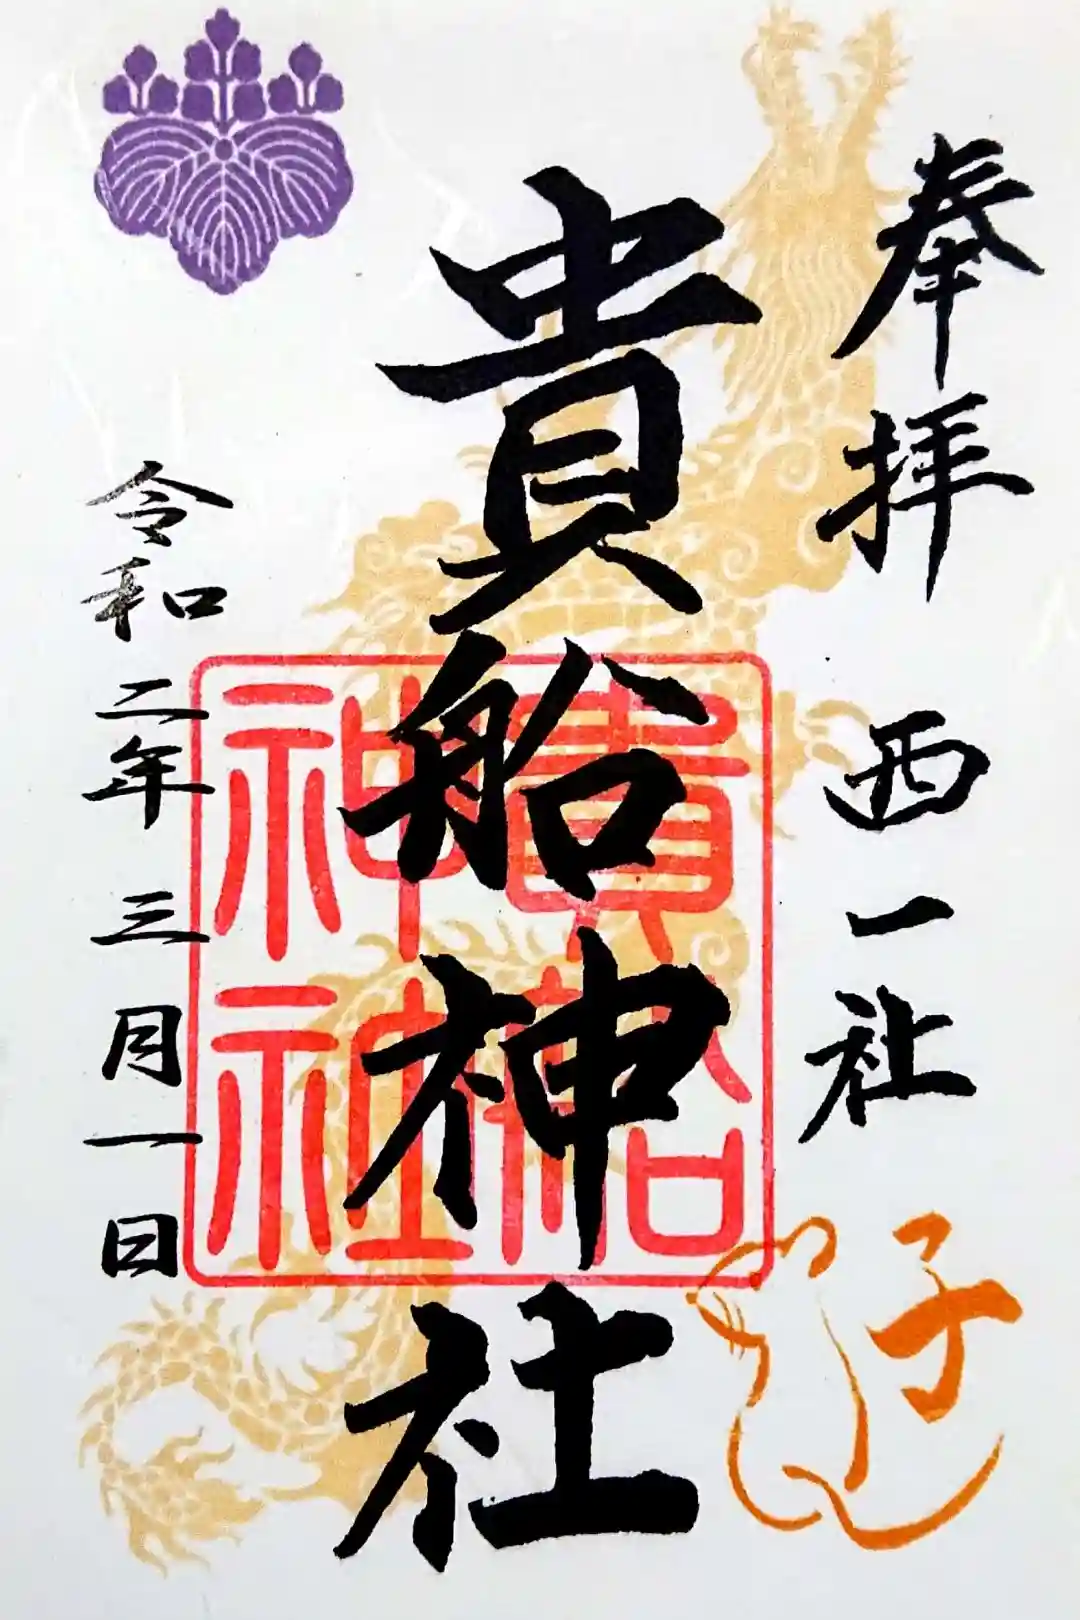 奉拝
西一社
子
貴船神社
貴船神社
令和二年三月一日